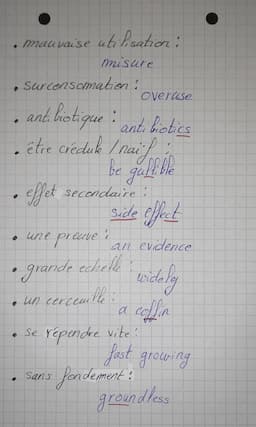 • mauvaise utilisation :
misure
• surconsommation :
overuse
• antibiotique :
antibiotics
• être crédule / naïf :
be gullible
• effet secondaire :
side effect
• une preuve :
an evidence
• grande echelle :
widely
• un cerceuille :
a coffin
• se répendre vite :
fast growing
• sans fondement :
groundless